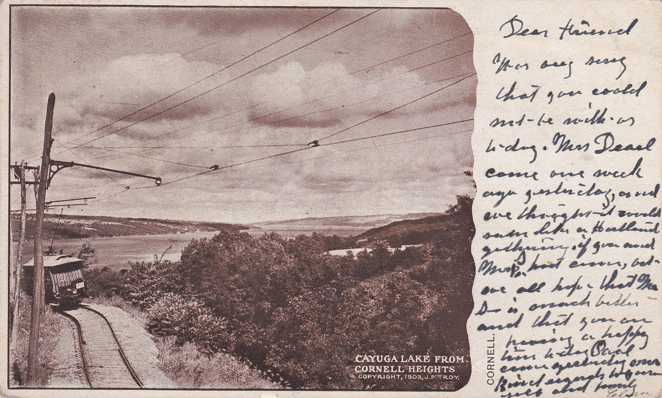 Dear Friend
Was very sorry
that you could
not be with us
to-day. Mrs
came one week
ago yesterday, and
we thought it would
seem like a
gathering if you and
Mrs. came, but
we all hope that
is much better
and that you are
having a happy
time to-day
came yesterday
Kind regards to your
self and family
CAYUGA LAKE FROM
CORNELL HEIGHTS
COPYRIGHT, 1903, J. P. TROY.
CORNELL.